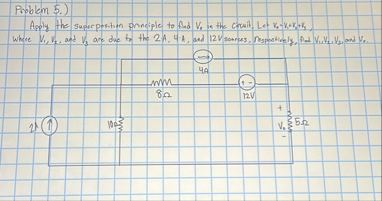 Problem 5.)
Apply the superposition principle to find V₀ in the circuit. Let V₀=V₁+V₂+V₃,
where V₁, V₂, and V₃ are due to the 2A, 4A, and 12V sources, respectively, find V₁, V₂, V₃, and V₀.
4A
8Ω
12V
+ -
2A
10Ω
+
V₀
-
5Ω